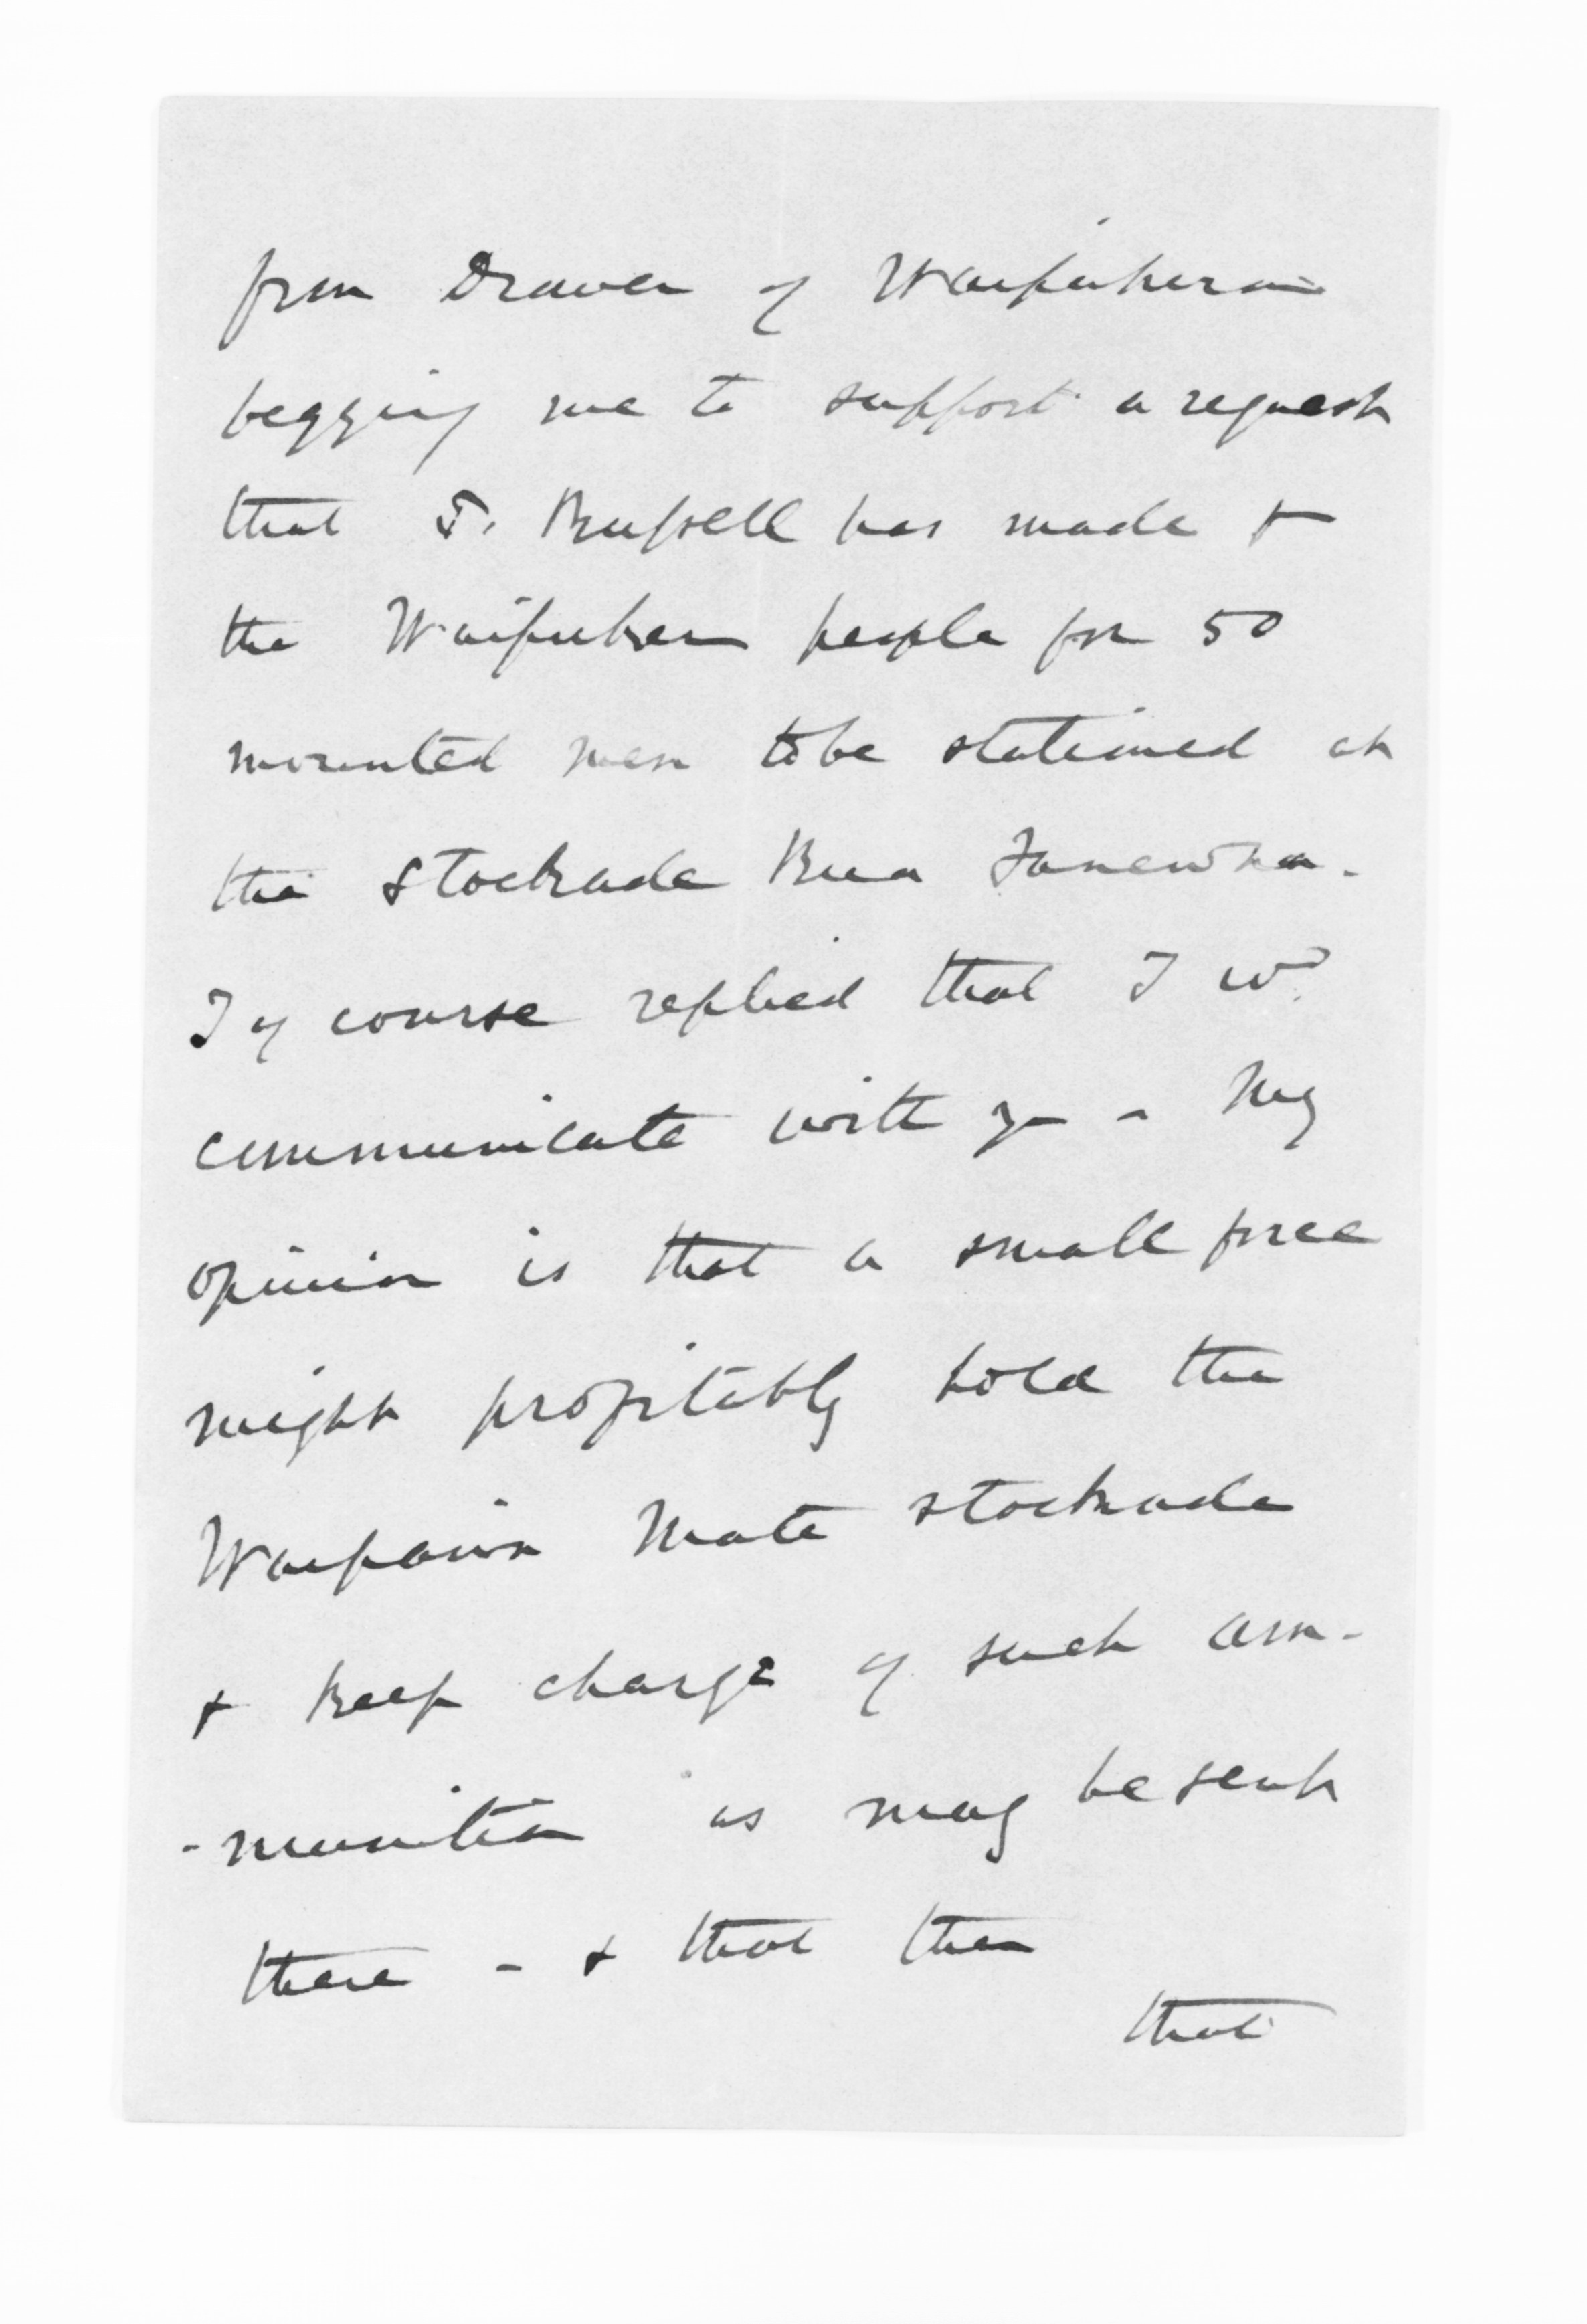 from Drower of Waipukurau
begging me to support a request
that F. Russell has made &
the Waipukurau people for 50
mounted men to be stationed at
the Stockade Rua Tanewha.
I of course replied that I wd.
communicate with you - My
opinion is that a small force
might profitably hold the
Waipawa Mate stockade
& keep charge of such am-
-munition as may be sent
there - & that then
that